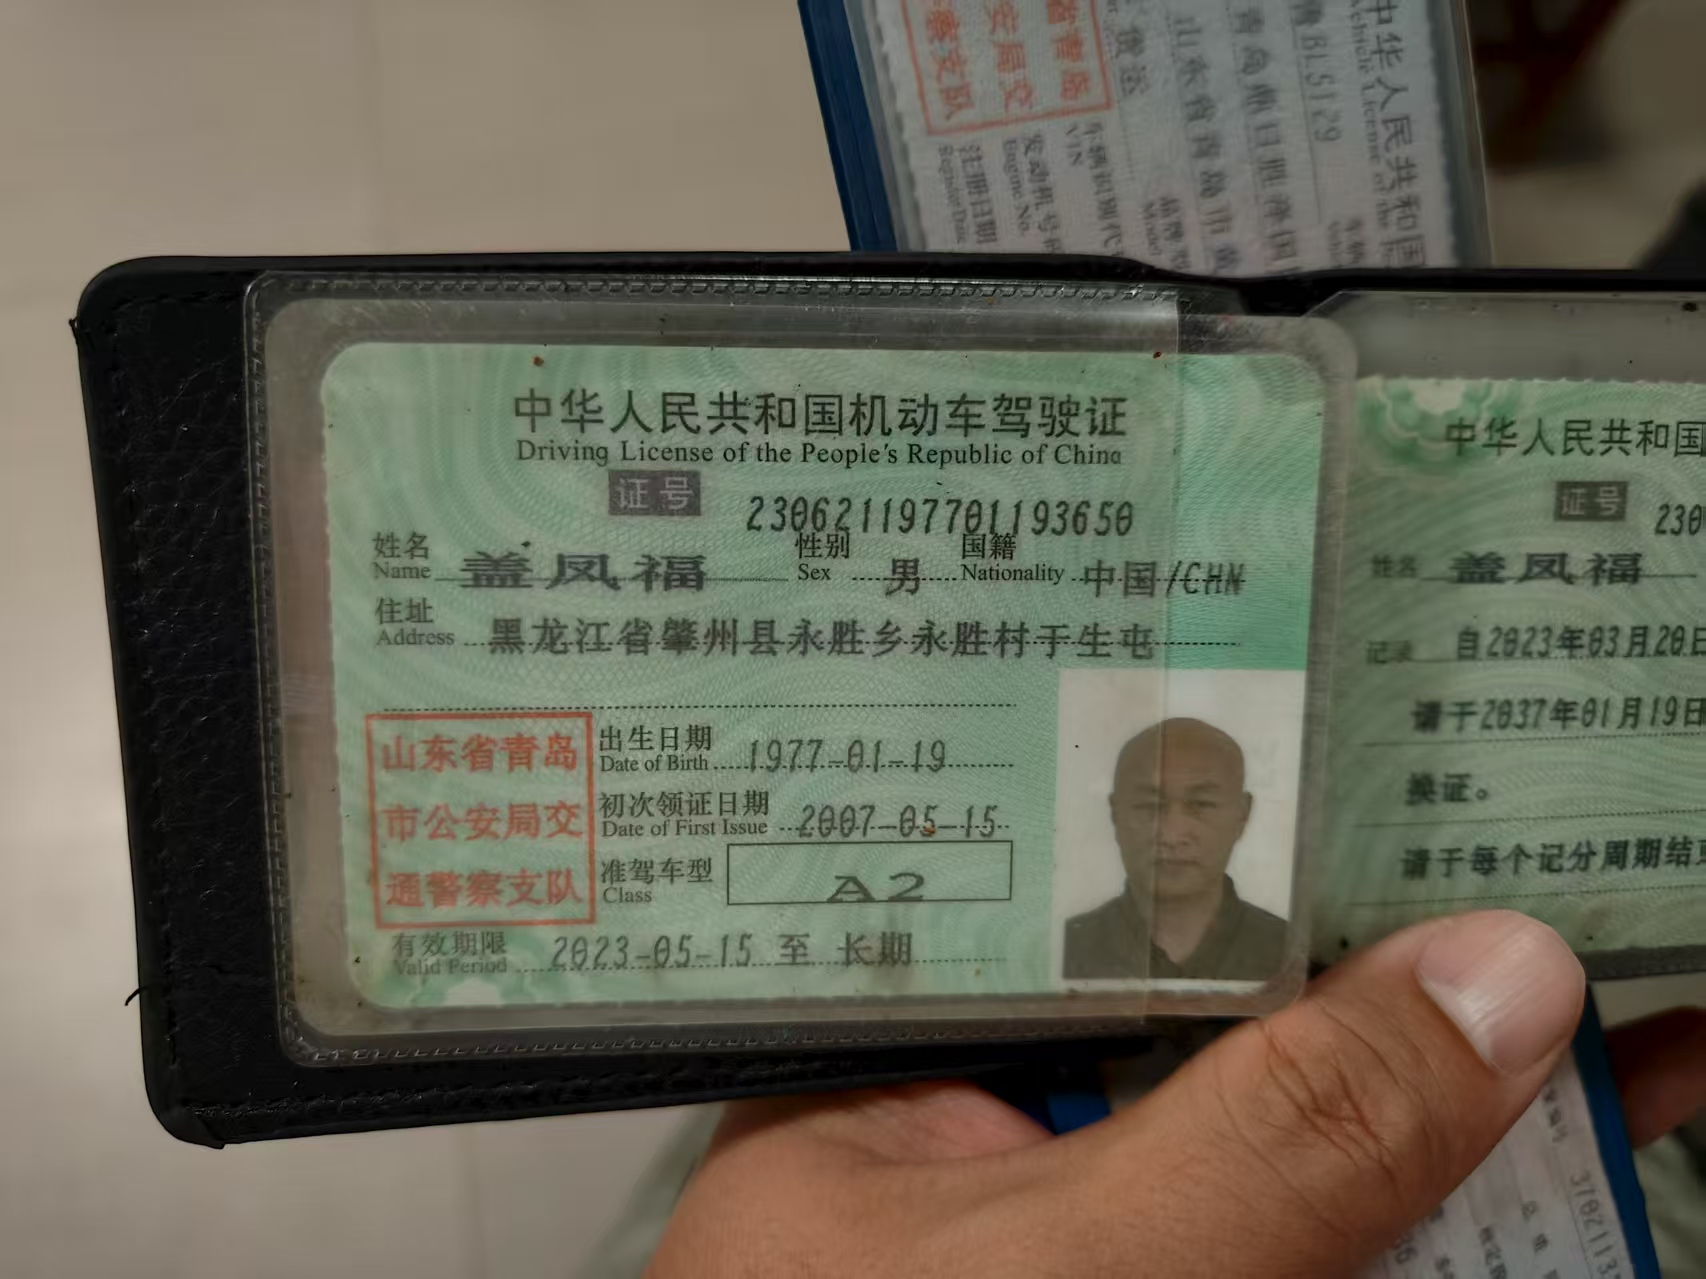 中华人民共和国机动车驾驶证
Driving License of the People's Republic of China
证号 230621197701193650
姓名 Name 盖凤福 性别 Sex 男 国籍 Nationality 中国/CHN
住址 Address 黑龙江省肇州县永胜乡永胜村于生屯
山东省青岛
市公安局交
通警察支队
出生日期 Date of Birth 1977-01-19
初次领证日期 Date of First Issue 2007-05-15
准驾车型 Class A2
有效期限 Valid Period 2023-05-15 至 长期
中华人民共和国
证号 230
姓名 盖凤福
记录 自2023年03月20日
请于2037年01月19日
换证。
请于每个记分周期结
中华人民共和国
Vehicle License of the
BL5129
山东省青岛市黄
货运
车辆识别代
VIN
发动机号码
Engine No.
注册日期
Register Date